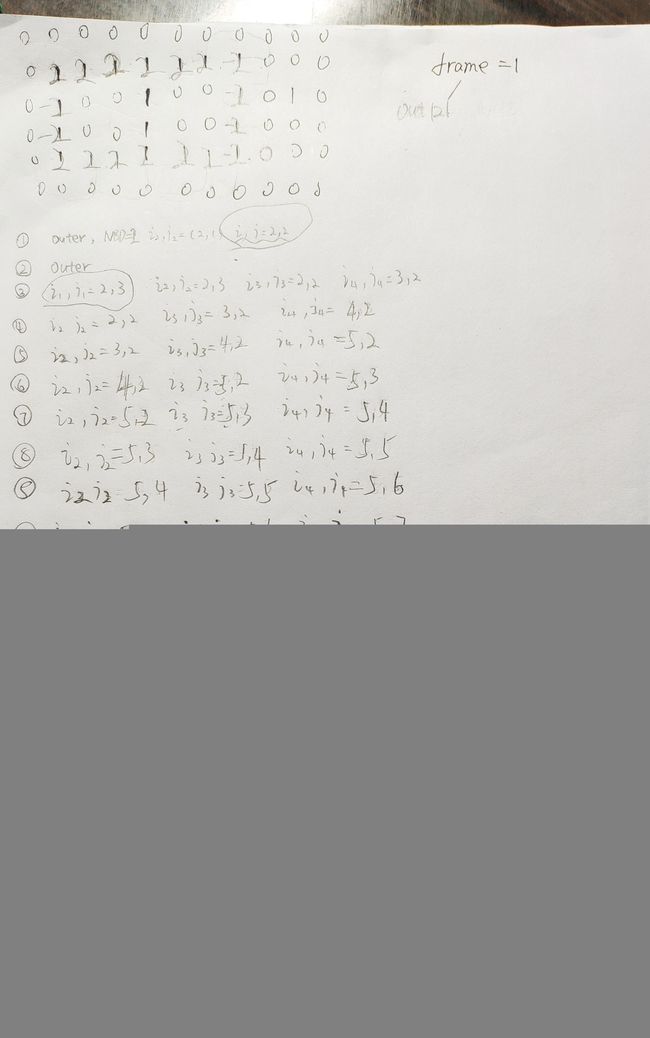 0 0 0 0 0 0 0 0 0 0 0
0 2 2 2 2 2 2 -2 0 0 0
0 -2 0 0 1 0 0 -2 0 1 0
0 -2 0 0 1 0 0 -2 0 0 0
0 2 2 2 2 2 2 -2 0 0 0
0 0 0 0 0 0 0 0 0 0 0
frame =1
① outer, i, j=2,2
② outer
③ i₁, j₁=2,3 i₂, j₂=2,3 i₃, j₃=2,2 i₄, j₄=3,2
④ i₂ j₂=2,2 i₃, j₃=3,2 i₄, j₄=4,2
⑤ i₂, j₂=3,2 i₃, j₃=4,2 i₄, j₄=5,2
⑥ i₂, j₂=4,2 i₃ j₃=5,2 i₄, j₄=5,3
⑦ i₂, j₂=5,2 i₃ j₃=5,3 i₄, j₄=5,4
⑧ i₂, j₂=5,3 i₃ j₃=5,4 i₄, j₄=5,5
⑨ i₂ j₂=5,4 i₃ j₃=5,5 i₄, j₄=5,6